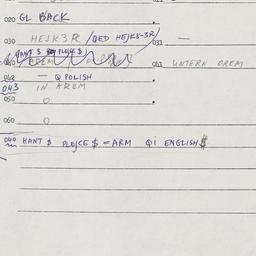 020 GL BACK
030 HEJK3R /QED HEJK3-3R/ 031 —
HANT $ PLEJCE $
040 AREM 041 UNTERN AREM
042 — Q POLISH
043 IN AREM
050 O
060 O
040 HANT $ PLEJCE $ = ARM QI ENGLISH $